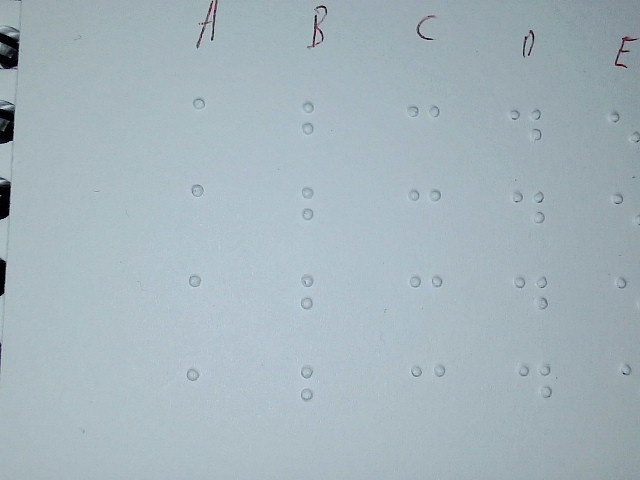 A B C D E
⠁ ⠃ ⠉ ⠙ ⠑
⠁ ⠃ ⠉ ⠙ ⠑
⠁ ⠃ ⠉ ⠙ ⠑
⠁ ⠃ ⠉ ⠙